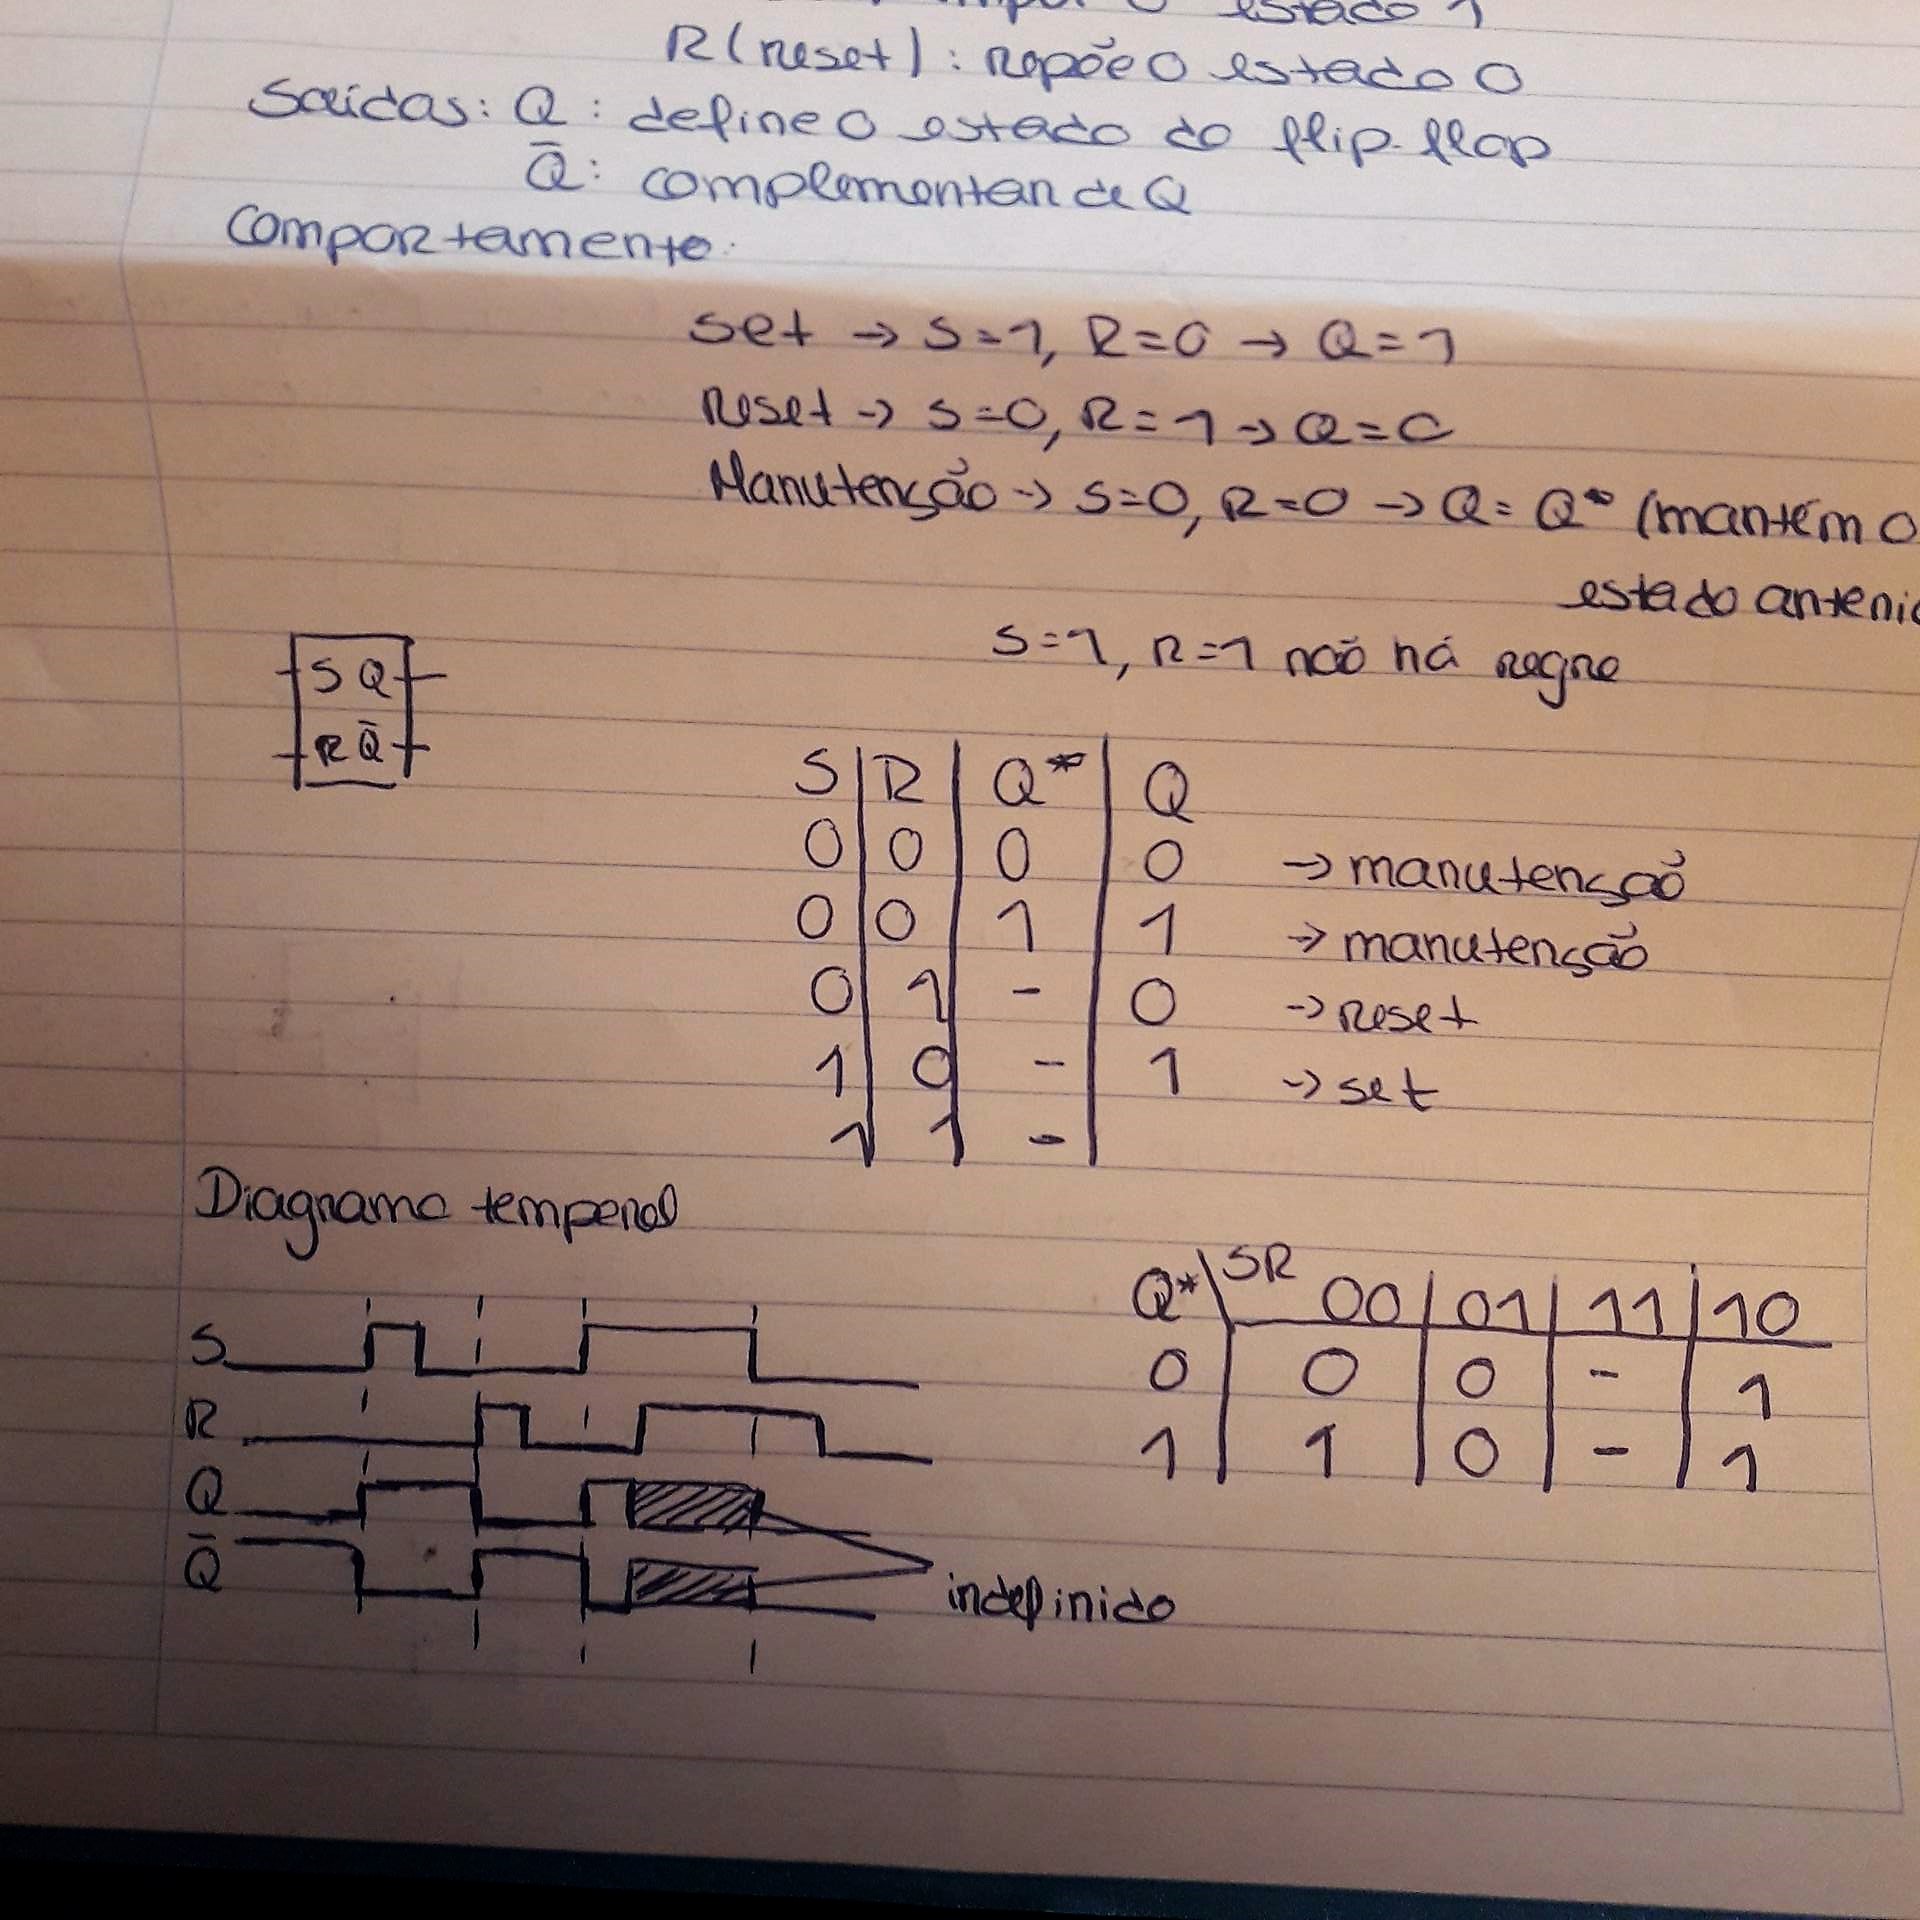 estado 1
R (reset) : repõe o estado 0
Saídas: Q : define o estado do flip-flop
Q̅ : complementar de Q
Comportamento:
Set → S=1, R=0 → Q=1
Reset → S=0, R=1 → Q=0
Manutenção → S=0, R=0 → Q = Q* (mantém o
estado anterio
S=1, R=1 não há regra
S Q
R Q̅
S R Q* Q
0 0 0 0 → manutenção
0 0 1 1 → manutenção
0 1 - 0 → reset
1 0 - 1 → set
1 1 -
Diagrama temporal
Q* \ SR 00 01 11 10
0 0 0 - 1
1 1 0 - 1
S
R
Q
Q̅
indefinido